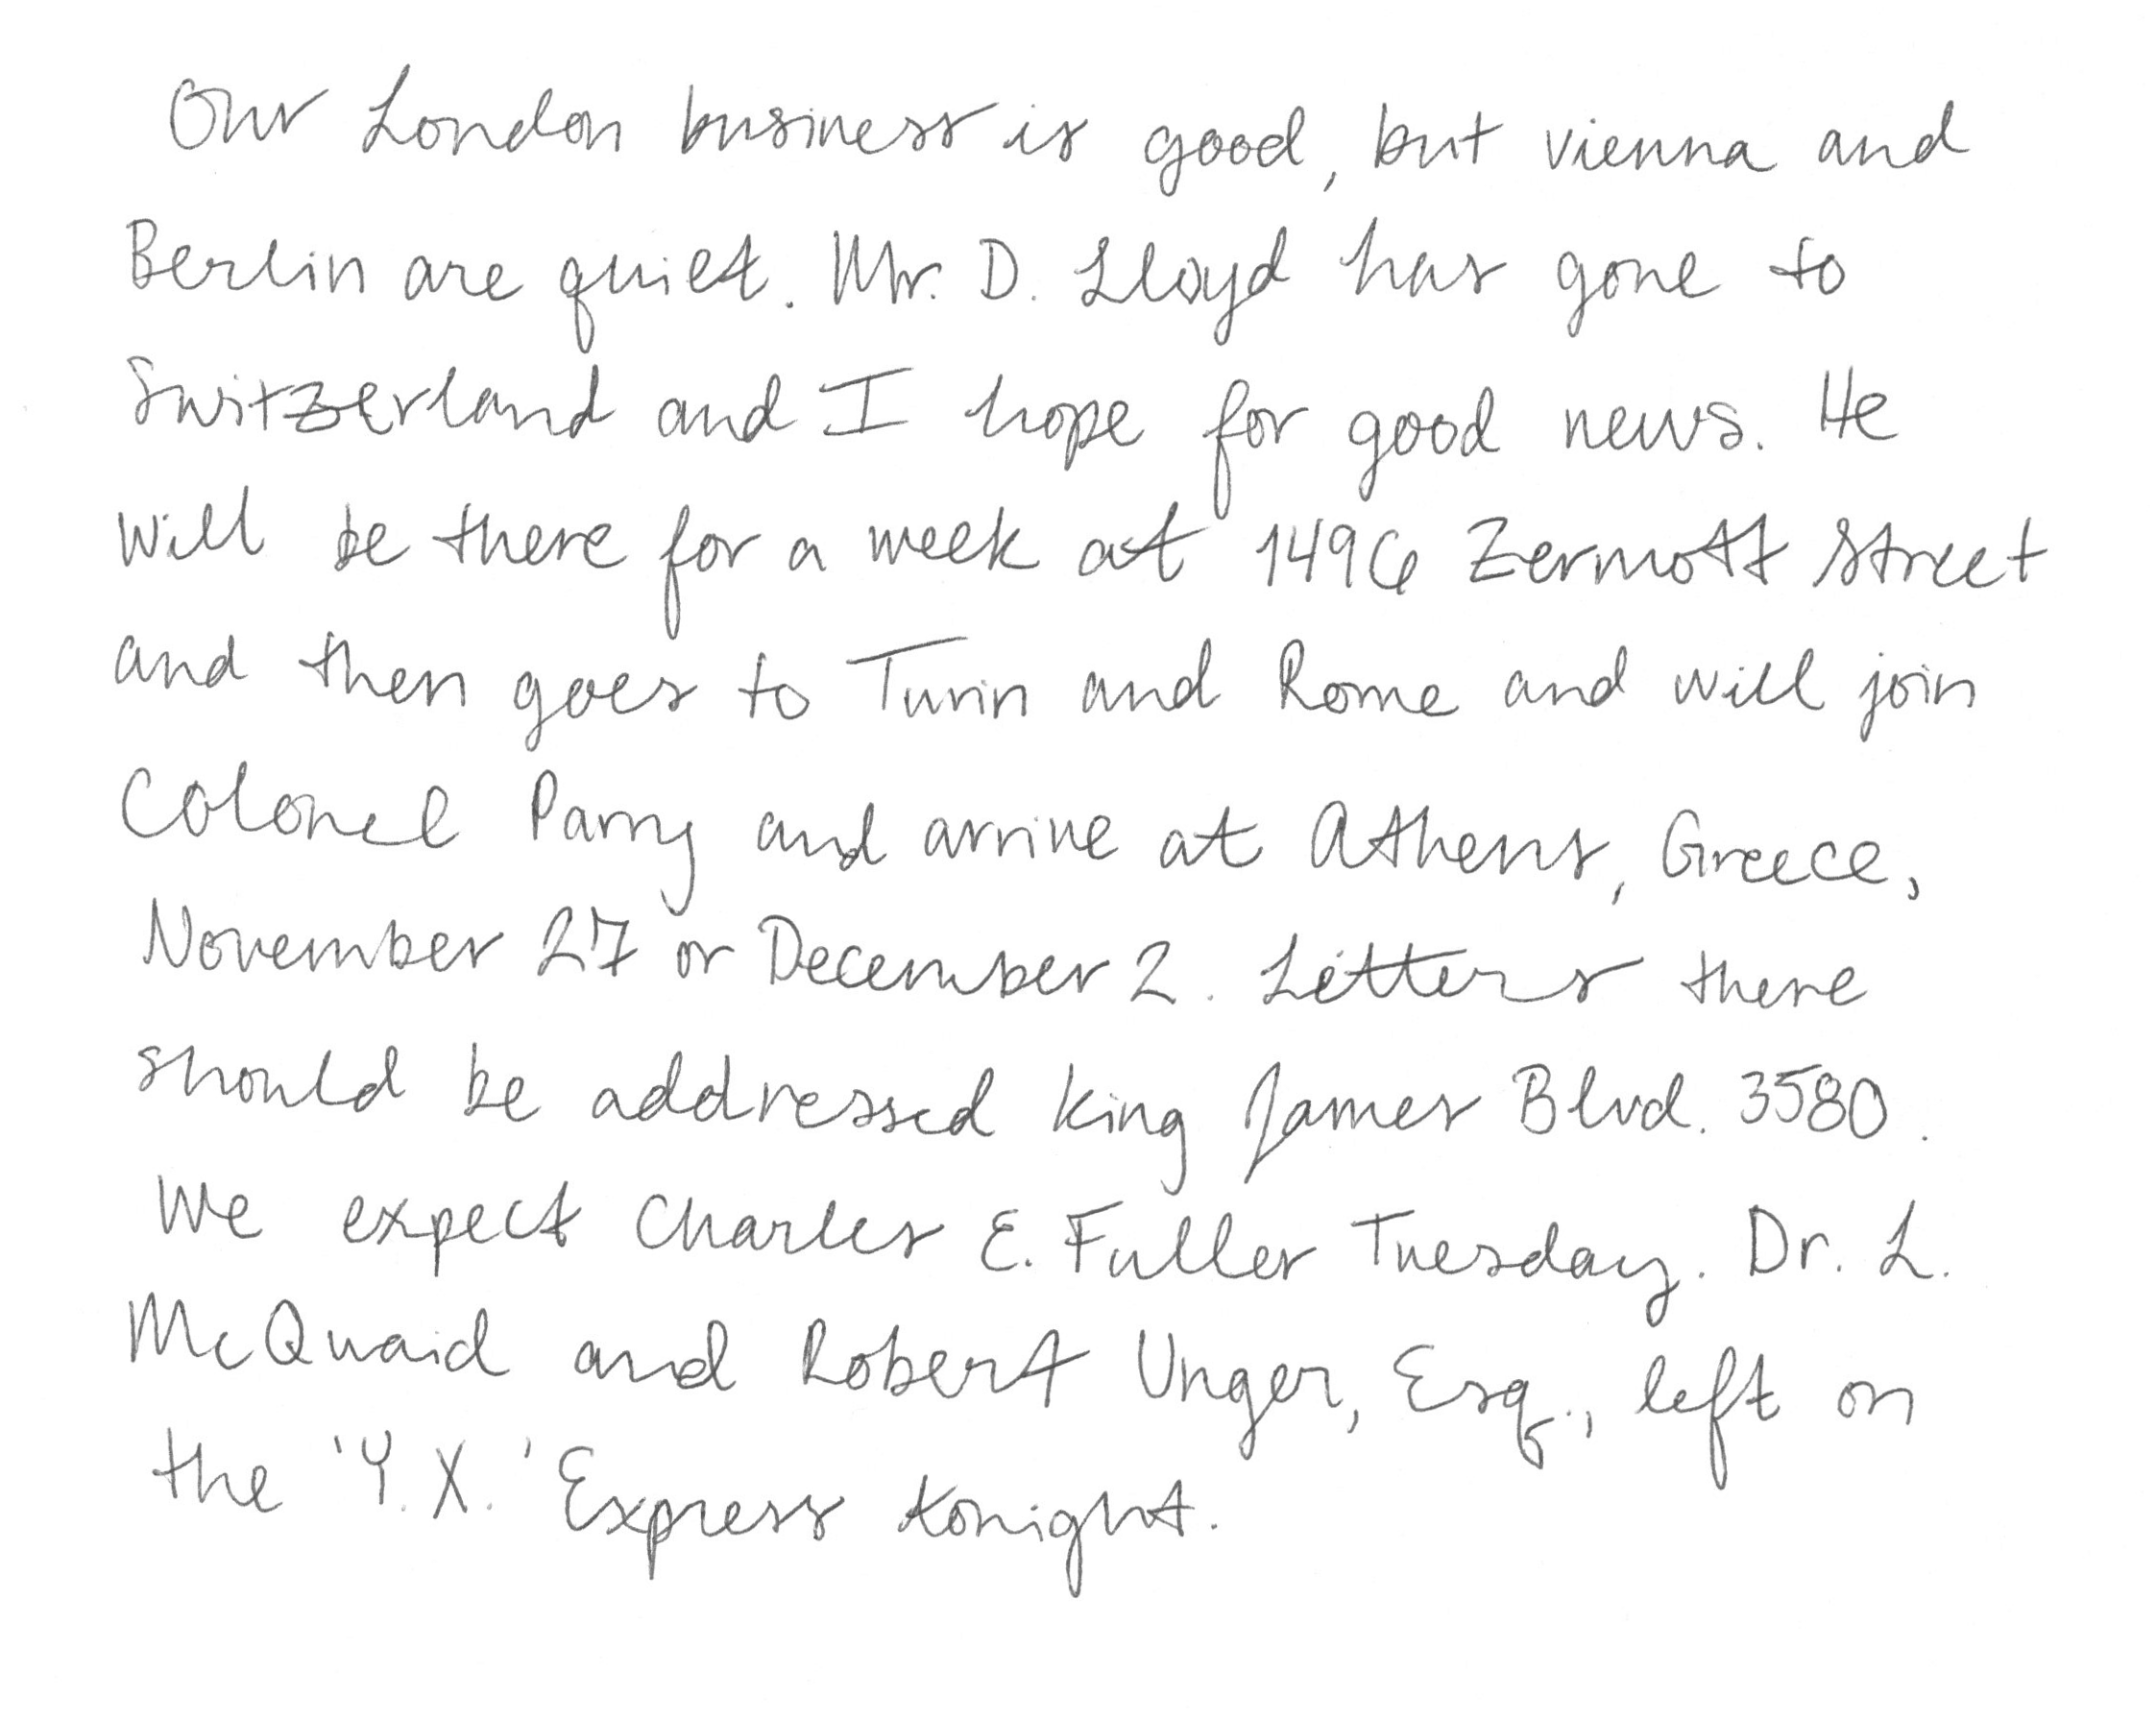 Our London business is good, but vienna and
Berlin are quiet. Mr. D. Lloyd has gone to
Switzerland and I hope for good news. He
will be there for a week at 1496 Zermott Street
and then goes to Turin and Rome and will join
Colonel Parry and arrive at Athens, Greece,
November 27 or December 2. Letters there
should be addressed King James Blvd. 3580.
We expect Charles E. Fuller Tuesday. Dr. L.
McQuaid and Robert Unger, Esq., left on
the 'Y.X.' Express tonight.